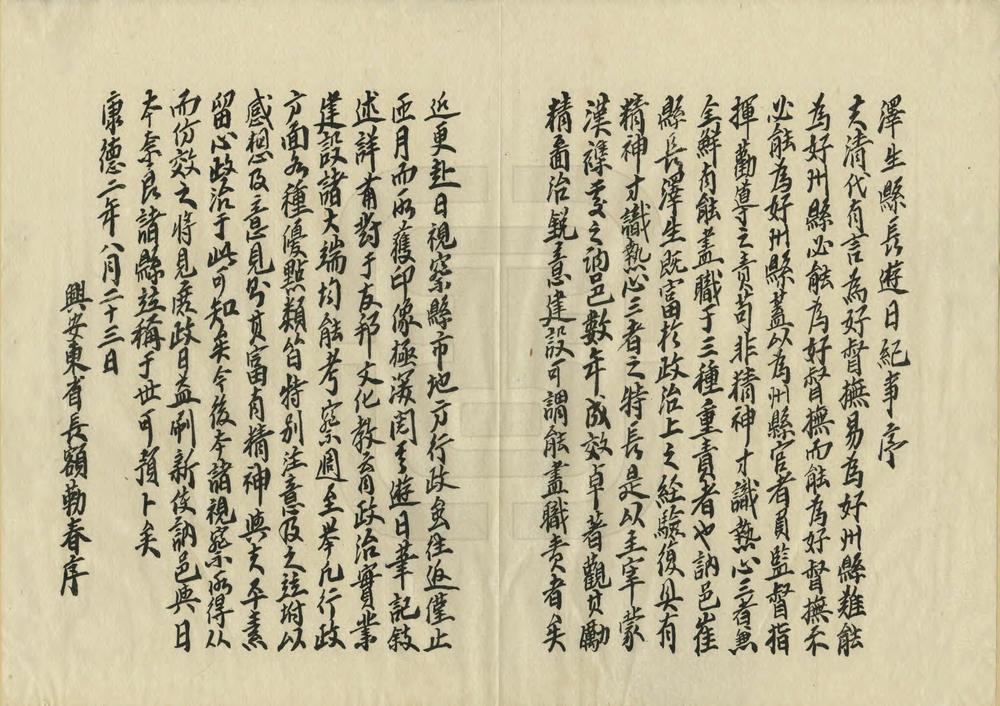 澤生縣長遊日紀事序
大清代有言為好督撫易為好州縣難能
為好州縣必能為好督撫而能為好督撫不
必能為好州縣蓋以為州縣官者員監督指
揮勸導之責苟非精神才識熱心三者無
全鮮有能盡職于三種重責者也訥邑崔
縣長澤生既富於政治上之經驗復具有
精神才識熱心三者之特長是以主宰蒙
漢雜處之訥邑數年成效卓著觀其勵
精圖治銳意建設可謂能盡職責者矣
近更赴日視察縣市地方行政雖往返僅止
匝月而所獲印像極深閱其遊日筆記敍
述詳莆對于友邦文化教育政治實業
建設諸大端均能考察週至舉凡行政
方面各種優點類皆特別注意及之並附以
感想及意見則其富有精神與夫平素
留心政治于此可知矣今後本諸視察所得從
而仿效之將見庶政日益刷新使訥邑與日
本奈良諸縣竝稱于世可預卜矣
康德二年八月二十三日
興安東省長額勒春序